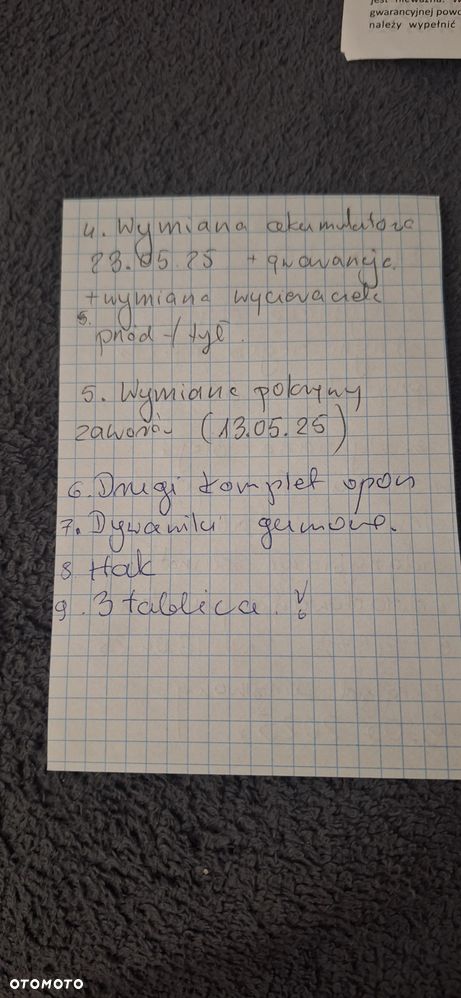 jest nieważna. W
gwarancyjnej powo
należy wypełnić
4. Wymiana akumulatora
23.05.25 + gwarancja.
+ wymiana wycieraczek
s. przód - / tył.
5. Wymiana pokrywy
zaworów (13.05.25)
6. Drugi komplet opon
7. Dywaniki gumowe.
8. Hak
9. 3 tablica. !
OTOMOTO